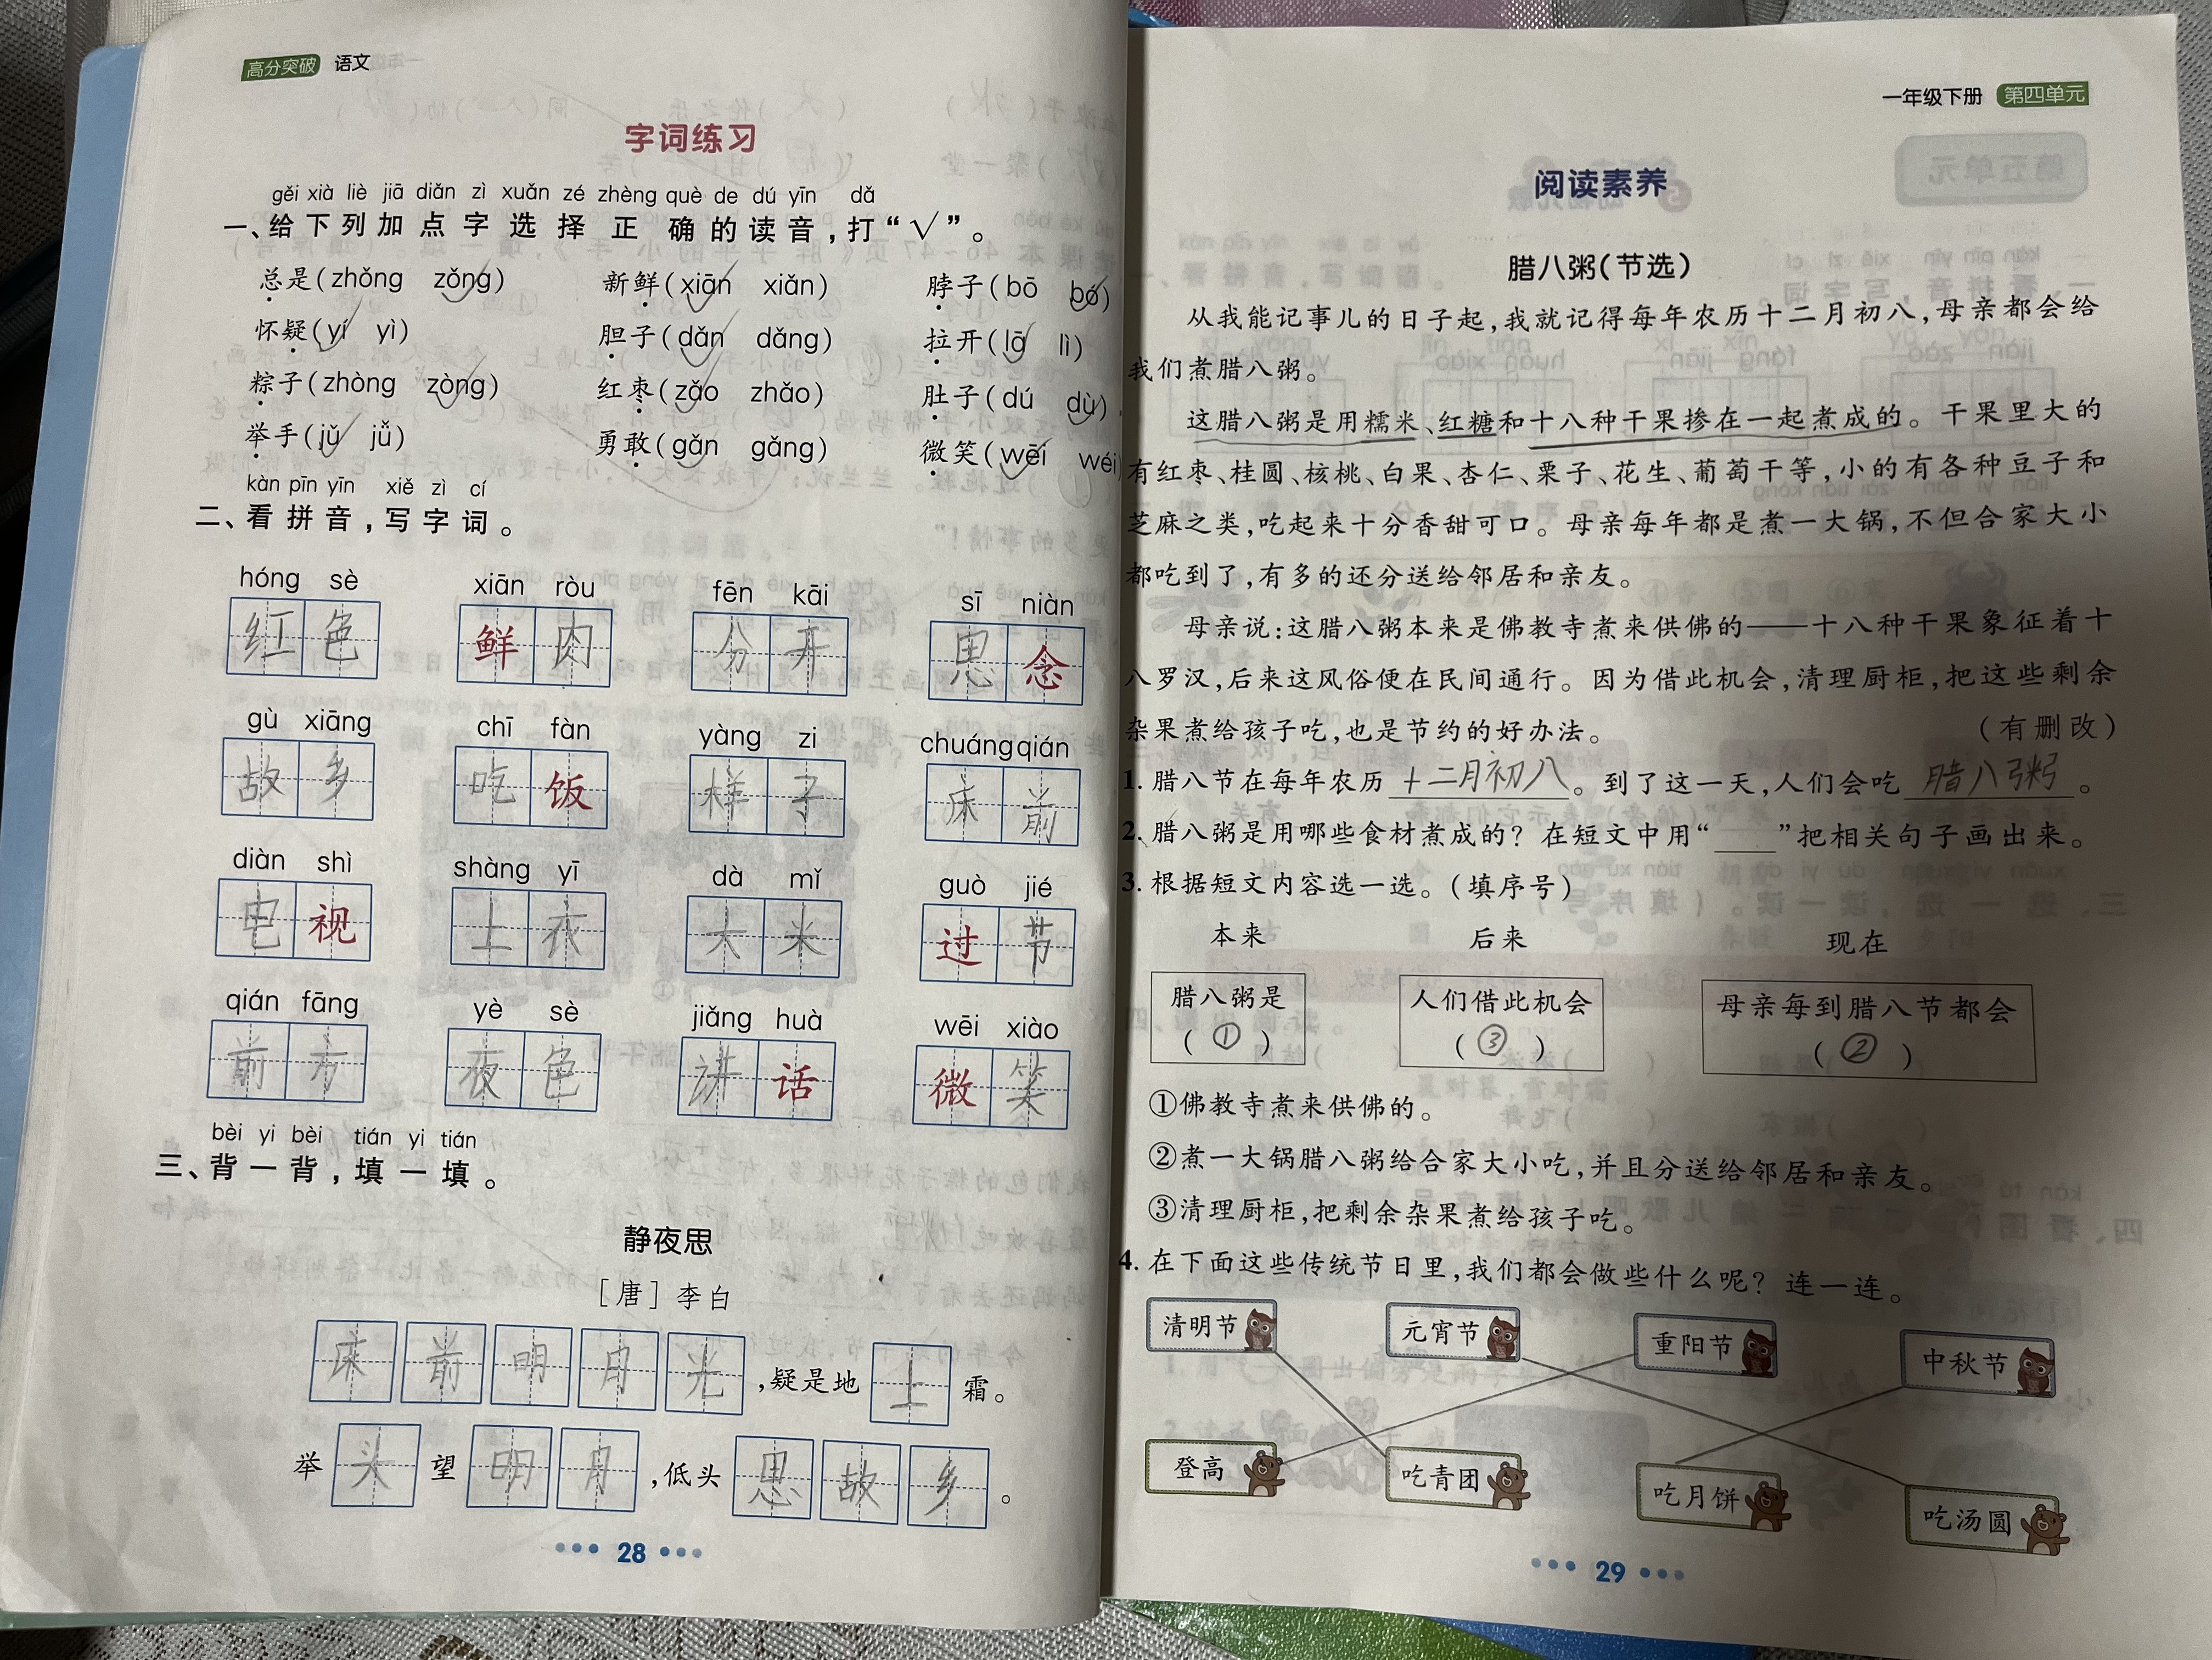 高分突破 语文
字词练习
gěi xià liè jiā diǎn zì xuǎn zé zhèng què de dú yīn dǎ
一、给下列加点字选择正确的读音,打“√”。
总是(zhǒng zǒng) 新鲜(xiān xiǎn) 脖子(bō bó)
怀疑(yí yì) 胆子(dǎn dǎng) 拉开(lā lì)
粽子(zhòng zòng) 红枣(zǎo zhǎo) 肚子(dú dù)
举手(jǔ jǚ) 勇敢(gǎn gǎng) 微笑(wēi wéi
kàn pīn yīn xiě zì cí
二、看拼音,写字词。
hóng sè xiān ròu fēn kāi sī niàn
红色 鲜肉 分开 思念
gù xiāng chī fàn yàng zi chuáng qián
故乡 吃饭 样子 床前
diàn shì shàng yī dà mǐ guò jié
电视 上衣 大米 过节
qián fāng yè sè jiǎng huà wēi xiào
前方 夜色 讲话 微笑
bèi yi bèi tián yi tián
三、背一背,填一填。
静夜思
[唐]李白
床前明月光,疑是地上霜。
举头望明月,低头思故乡。
28
一年级下册 第四单元
阅读素养
腊八粥(节选)
从我能记事儿的日子起,我就记得每年农历十二月初八,母亲都会给
我们煮腊八粥。
这腊八粥是用糯米、红糖和十八种干果掺在一起煮成的。干果里大的
有红枣、桂圆、核桃、白果、杏仁、栗子、花生、葡萄干等,小的有各种豆子和
芝麻之类,吃起来十分香甜可口。母亲每年都是煮一大锅,不但合家大小
都吃到了,有多的还分送给邻居和亲友。
母亲说:这腊八粥本来是佛教寺煮来供佛的——十八种干果象征着十
八罗汉,后来这风俗便在民间通行。因为借此机会,清理厨柜,把这些剩余
杂果煮给孩子吃,也是节约的好办法。 (有删改)
1. 腊八节在每年农历十二月初八。到了这一天,人们会吃腊八粥。
2. 腊八粥是用哪些食材煮成的?在短文中用“___”把相关句子画出来。
3. 根据短文内容选一选。(填序号)
本来 后来 现在
腊八粥是 人们借此机会 母亲每到腊八节都会
(①) (③) (②)
①佛教寺煮来供佛的。
②煮一大锅腊八粥给合家大小吃,并且分送给邻居和亲友。
③清理厨柜,把剩余杂果煮给孩子吃。
4. 在下面这些传统节日里,我们都会做些什么呢?连一连。
清明节 元宵节 重阳节 中秋节
登高 吃青团 吃月饼 吃汤圆
29